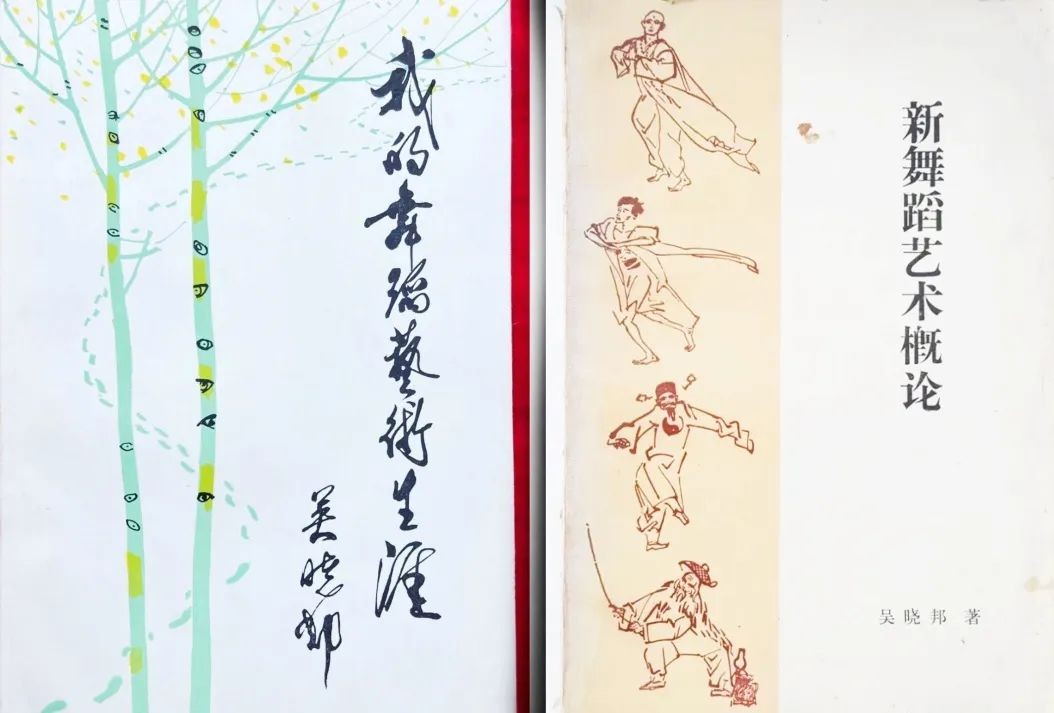 我的舞蹈藝術生涯
吴晓邦
新舞蹈艺术概论
吴晓邦 著